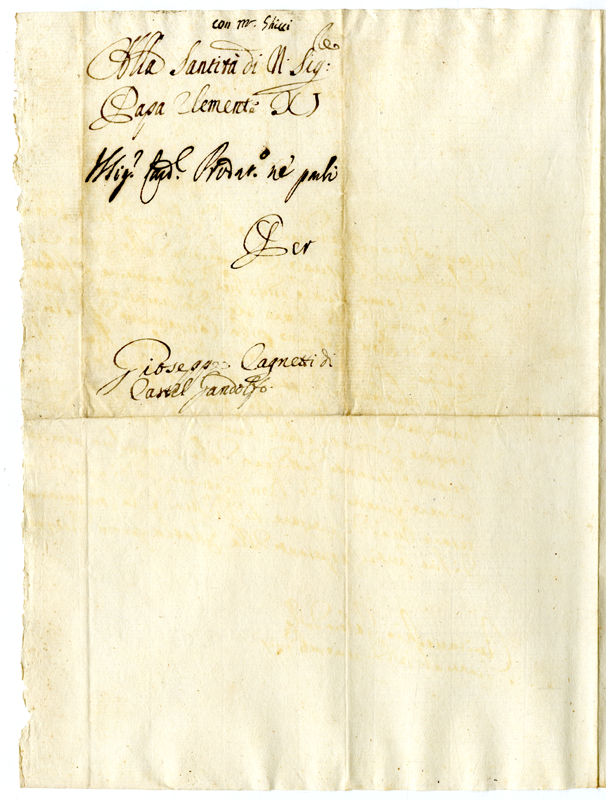 con mr. Ghizzi
Alla Santità di N. Sig.re
Papa Clemente XI
Mig.r Prodat.o ne parli
Per
Gioseppe Cagnetti di
Castel Gandolfo